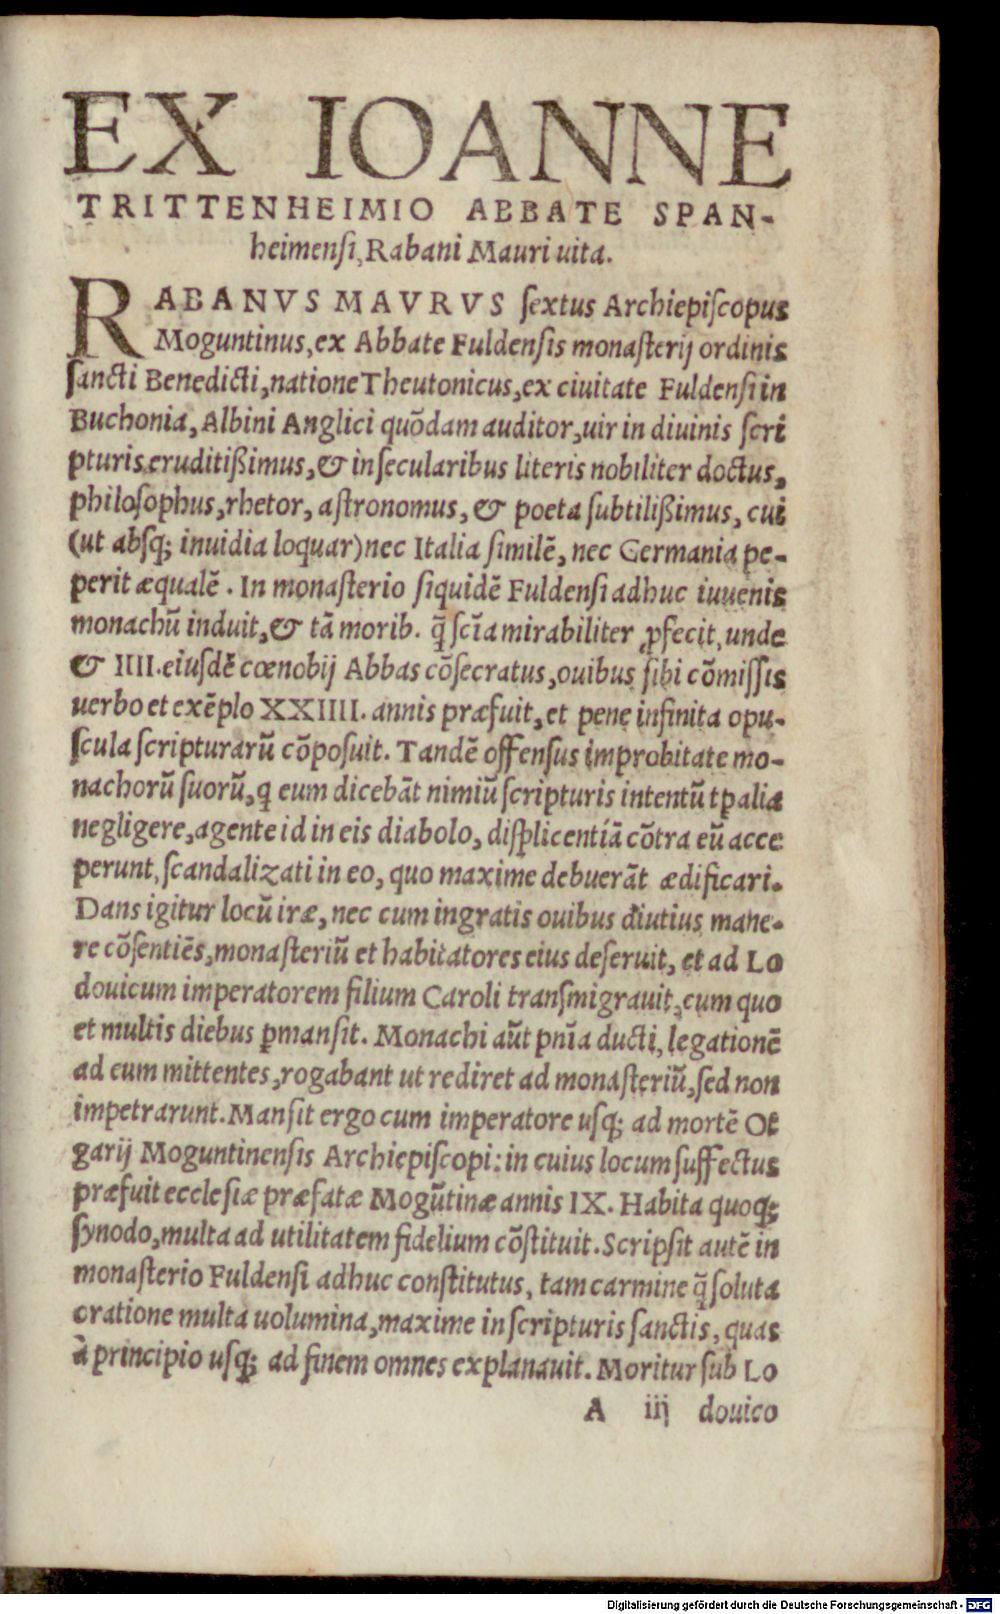 EX IOANNE
TRITTENHEIMIO ABBATE SPAN-
heimensi, Rabani Mauri uita.
RABANVS MAVRVS ſextus Archiepiſcopus
Moguntinus, ex Abbate Fuldenſis monaſterij ordinis
ſancti Benedicti, natione Theutonicus, ex ciuitate Fuldenſi in
Buchonia, Albini Anglici quōdam auditor, uir in diuinis ſcri
pturis eruditißimus, & in ſecularibus literis nobiliter doctus,
philoſophus, rhetor, aſtronomus, & poeta ſubtilißimus, cui
(ut abſq; inuidia loquar) nec Italia ſimilē, nec Germania pe-
perit æqualē. In monaſterio ſiquidē Fuldenſi adhuc iuuenis
monachū induit, & tā morib. q̃ ſcīa mirabiliter ꝓfecit, unde
& IIII. eiuſdē cœnobij Abbas cōſecratus, ouibus ſibi cōmiſſis
uerbo et exēplo XXIIII. annis præfuit, et pene infinita opu-
ſcula ſcripturarū cōpoſuit. Tandē offenſus improbitate mo-
nachorū ſuorū, q eum dicebāt nimiū ſcripturis intentū tꝑalia
negligere, agente id in eis diabolo, diſplicentiā cōtra eū acce
perunt, ſcandalizati in eo, quo maxime debuerāt ædificari.
Dans igitur locū iræ, nec cum ingratis ouibus diutius mane-
re cōſentiēs, monaſteriū et habitatores eius deſeruit, et ad Lo
douicum imperatorem filium Caroli tranſmigrauit, cum quo
et multis diebus ꝑmanſit. Monachi aūt pn̄ia ducti, legationē
ad eum mittentes, rogabant ut rediret ad monaſteriū, ſed non
impetrarunt. Manſit ergo cum imperatore uſq; ad mortē Ot
garij Moguntinenſis Archiepiſcopi: in cuius locum ſuffectus
præfuit eccleſiæ præfatæ Mogūtinæ annis IX. Habita quoq;
ſynodo, multa ad utilitatem fidelium cōſtituit. Scripſit autē in
monaſterio Fuldenſi adhuc conſtitutus, tam carmine q̃ ſoluta
oratione multa uolumina, maxime in ſcripturis ſanctis, quas
à principio uſq; ad finem omnes explanauit. Moritur ſub Lo
A iij douico
Digitalisierung gefördert durch die Deutsche Forschungsgemeinschaft - DFG